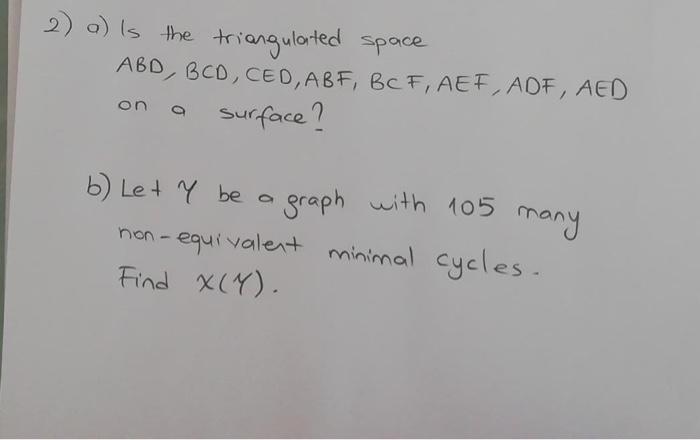 2) a) Is the triangulated space
ABD, BCD, CED, ABF, BCF, AEF, ADF, AED
on a surface?
b) Let Y be a graph with 105 many
non-equivalent minimal cycles.
Find X(Y).